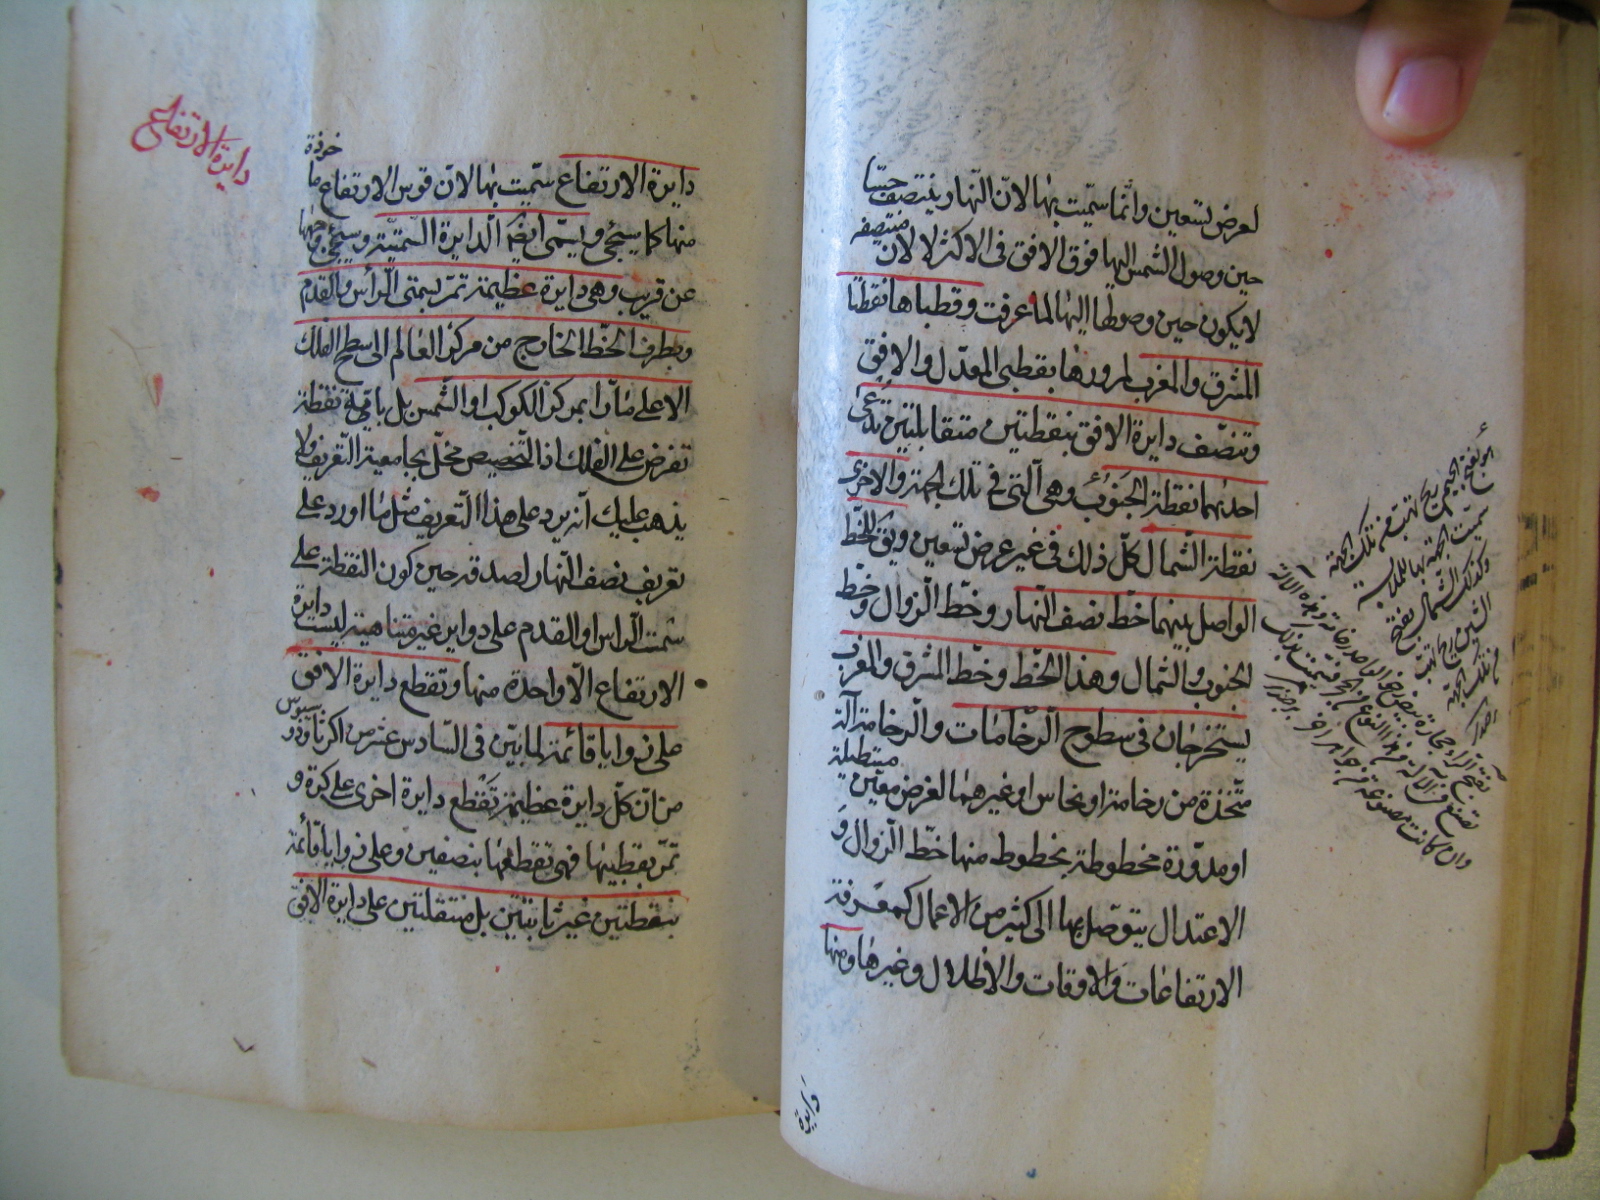 لعرض تسعين وانما سميت بها لان النهار ينتصف حسّا
حين وصول الشمس اليها فوق الافق فى الاكثر لا لان منتصفه
لا يكون حين وصولها اليها لما عرفت وقطباها نقطتا
المشرق والمغرب لمرورها بقطبى المعدّل والافق
وتنصّف دايرة الافق بنقطتين متقابلتين تدعى
احديهما نقطة الجنوب وهى التى فى تلك الجهة والاخرى
نقطة الشمال كلّ ذلك فى غير عرض تسعين ويق للخط
الواصل بينهما خط نصف النهار وخط الزوال وخط
الجنوب والشمال وهذا الخط وخط المشرق والمغرب
يستخرجان فى سطوح الرخامات والرخامة آلة
متّخذة من رخامة او نحاس او غيرهما لغرض معيّن مستطيلة
او مدوّرة مخطوطة بخطوط منها خط الزوال و
الاعتدال يتوصّل بها الى كثير من الاعمال كمعرفة
الارتفاعات والاوقات والاظلال وغيرها ومنها
دايرة
دايرة الارتفاع
دايرة الارتفاع سمّيت بها لان قوس الارتفاع ما خوذة
منها كما سيجئ ويسمّى ايضا الدايرة السمتية وسيجئ وجهها
عن قريب وهى دايرة عظيمة تمرّ بسمتى الرأس والقدم
وبطرف الخط الخارج من مركز العالم الى سطح الفلك
الاعلى مارّا بمركز الكوكب او الشمس بل باىّة نقطة
تفرض على الفلك اذ التخصيص مخلّ بجامعية التعريف ولا
يذهب عليك انّه يرد على هذا التعريف مثل ما اورد على
تعريف نصف النهار لصدقه حين كون النقطة على
سمت الراس او القدم على دواير غير متناهية ليست دايرة
الارتفاع الّا واحدة منها وتقطع دايرة الافق
على زوايا قائمة لما بيّن فى السادس عشر من اكر ثاوذوسيوس
من انّ كلّ دايرة عظيمة تقطع دايرة اخرى على كرة و
تمرّ بقطبيها فهى تقطعها بنصفين وعلى زوايا قائمة
بنقطتين غير ثابتتين بل منتقلتين على دايرة الافق